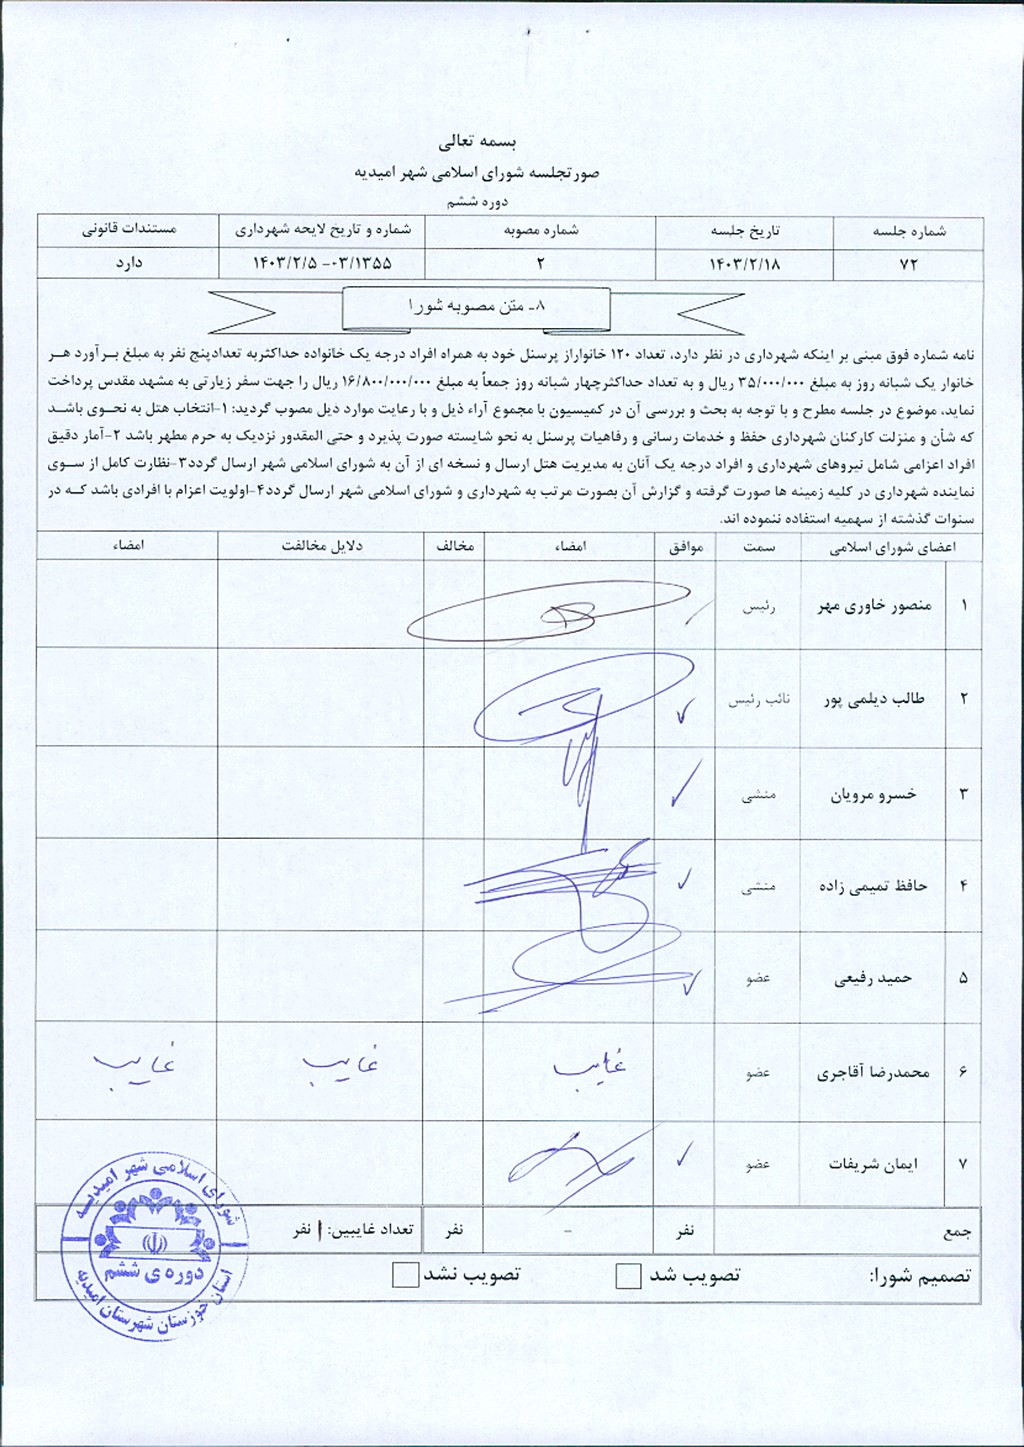 بسمه تعالی
صورتجلسه شورای اسلامی شهر امیدیه
دوره ششم
شماره جلسه تاریخ جلسه شماره مصوبه شماره و تاریخ لایحه شهرداری مستندات قانونی
۷۲ ۱۴۰۳/۲/۱۸ ۲ ۰۳/۱۳۵۵- ۱۴۰۳/۲/۵ دارد
۸- متن مصوبه شورا
نامه شماره فوق مبنی بر اینکه شهرداری در نظر دارد، تعداد ۱۲۰ خانواراز پرسنل خود به همراه افراد درجه یک خانواده حداکثربه تعدادپنج نفر به مبلغ برآورد هر
خانوار یک شبانه روز به مبلغ ۳۵/۰۰۰/۰۰۰ ریال و به تعداد حداکثرچهار شبانه روز جمعاً به مبلغ ۱۶/۸۰۰/۰۰۰/۰۰۰ ریال را جهت سفر زیارتی به مشهد مقدس پرداخت
نماید، موضوع در جلسه مطرح و با توجه به بحث و بررسی آن در کمیسیون با مجموع آراء ذیل و با رعایت موارد ذیل مصوب گردید: ۱-انتخاب هتل به نحوی باشد
که شأن و منزلت کارکنان شهرداری حفظ و خدمات رسانی و رفاهیات پرسنل به نحو شایسته صورت پذیرد و حتی المقدور نزدیک به حرم مطهر باشد ۲-آمار دقیق
افراد اعزامی شامل نیروهای شهرداری و افراد درجه یک آنان به مدیریت هتل ارسال و نسخه ای از آن به شورای اسلامی شهر ارسال گردد۳-نظارت کامل از سوی
نماینده شهرداری در کلیه زمینه ها صورت گرفته و گزارش آن بصورت مرتب به شهرداری و شورای اسلامی شهر ارسال گردد۴-اولویت اعزام با افرادی باشد که در
سنوات گذشته از سهمیه استفاده ننموده اند.
اعضای شورای اسلامی سمت موافق امضاء مخالف دلایل مخالفت امضاء
۱ منصور خاوری مهر رئیس
۲ طالب دیلمی پور نائب رئیس
۳ خسرو مرویان منشی
۴ حافظ تمیمی زاده منشی
۵ حمید رفیعی عضو
۶ محمدرضا آقاجری عضو غایب غایب غایب
۷ ایمان شریفات عضو
جمع نفر - نفر تعداد غایبین: ۱ نفر
تصمیم شورا: تصویب شد تصویب نشد
شورای اسلامی شهر امیدیه
دوره ی ششم
استان خوزستان شهرستان امیدیه